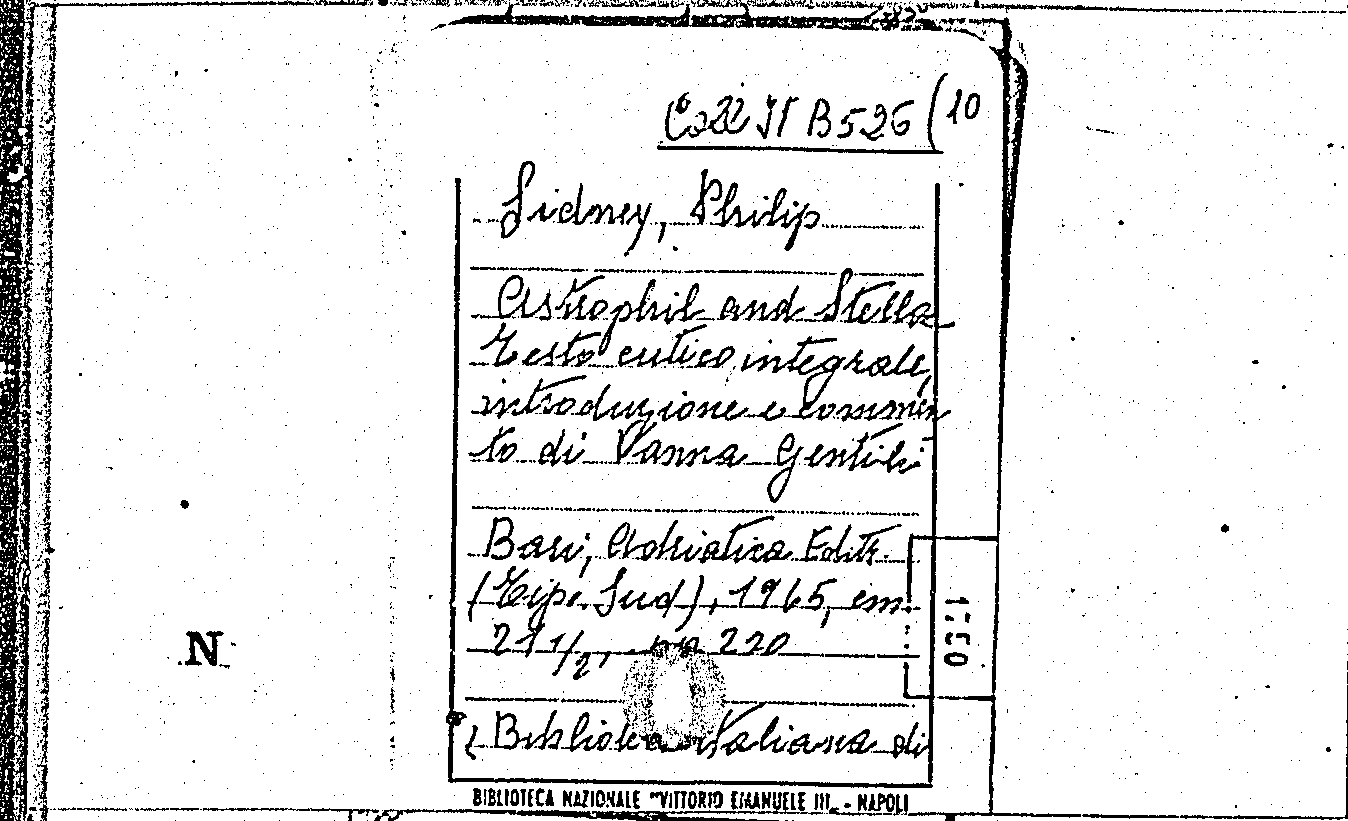 Coll It B 526 (10
Sidney, Philip
Astrophil and Stella
Testo critico integrale,
introduzione e commen
to di Vanna Gentili
Bari, Adriatica Editr.
(Tip. Sud), 1965, cm.
21 1/2, pp 220
(Biblioteca Italiana di
1750
N
BIBLIOTECA NAZIONALE "VITTORIO EMANUELE III" - NAPOLI